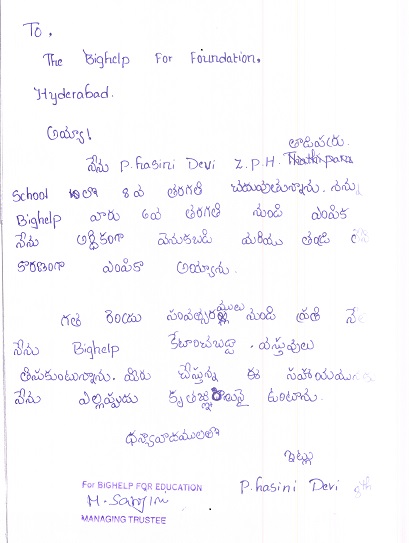 To,
The Bighelp For Foundation,
Hyderabad.
అయ్యా!
తాడిపరు.
నేను P. hasini Devi Z.P.H.
School లో 8వ తరగతి చదువుతున్నాను. నన్ను
Bighelp వారు 6వ తరగతి నుండి ఎంపిక
నేను ఆర్థికంగా వెనుకబడి మరియు తండ్రి
కారణంగా ఎంపికా అయ్యాను.
గత రెండు సంవత్సరములు నుండి ప్రతి
నేను Bighelp కేటాయించబడ్డా వస్తువులు
తీసుకుంటున్నాను. మీరు చేస్తున్న ఈ
నేను ఎల్లప్పుడు ఉంటాను.
ధన్యవాదములతో
ఇట్లు
P. hasini Devi 8th
For BIGHELP FOR EDUCATION
MANAGING TRUSTEE